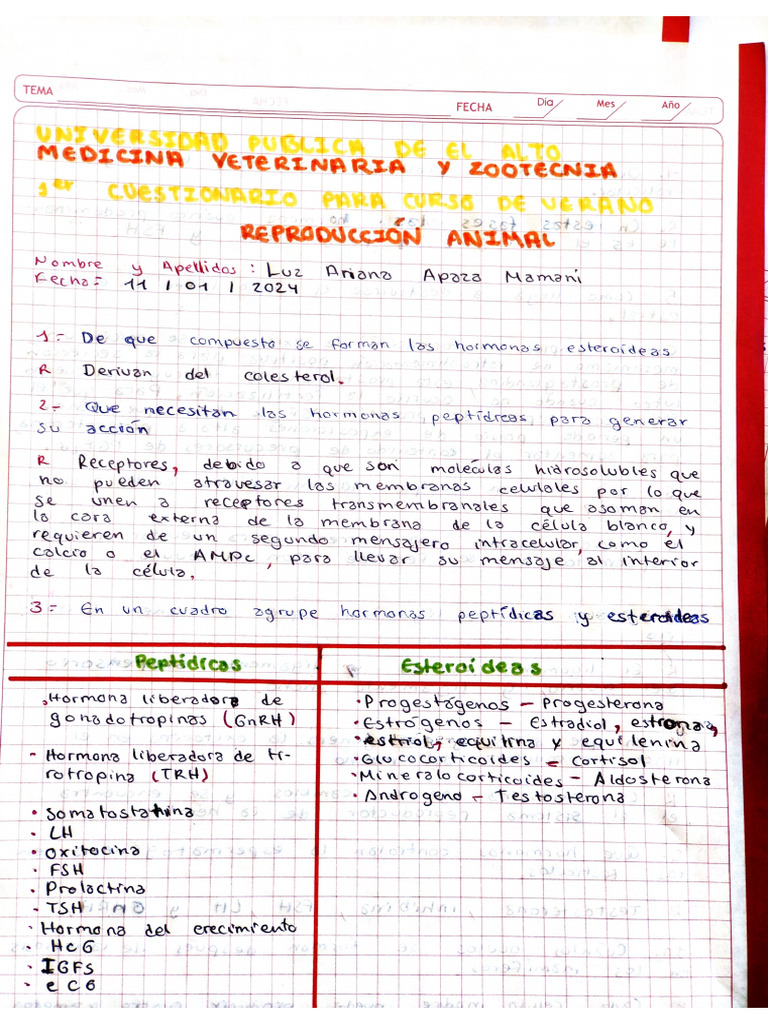 TEMA
FECHA Día Mes Año
UNIVERSIDAD PUBLICA DE EL ALTO
MEDICINA VETERINARIA Y ZOOTECNIA
1er CUESTIONARIO PARA CURSO DE VERANO
REPRODUCCIÓN ANIMAL
Nombre y Apellidos: Luz Ariana Apaza Mamani
Fecha= 11 / 01 / 2024
1.- De que compuesto se forman las hormonas esteroideas
R Derivan del colesterol.
2.- Que necesitan las hormonas peptídicas para generar
su acción
R Receptores, debido a que son moléculas hidrosolubles que
no pueden atravesar las membranas celulales por lo que
se unen a receptores transmembranales que asoman en
la cara externa de la membrana de la célula blanco, y
requieren de un segundo mensajero intracelular, como el
calcio o el AMPc, para llevar su mensaje al interior
de la célula.
3.- En un cuadro agrupe hormonas peptídicas y esteroideas
Peptídicas
Hormona liberadora de
gonadotropinas (GnRH)
- Hormona liberadora de ti-
rotropina (TRH)
• Somatostatina
• LH
• Oxitocina
• FSH
• Prolactina
- TSH
• Hormona del crecimiento
• HCG
• IGFS
• eCG
Esteroideas
• Progestágenos - Progesterona
• Estrógenos - Estradiol, estrona,
estriol, equilina y equilenina
• Glucocorticoides - Cortisol
• Mineralocorticoides - Aldosterona
• Androgeno - Testosterona